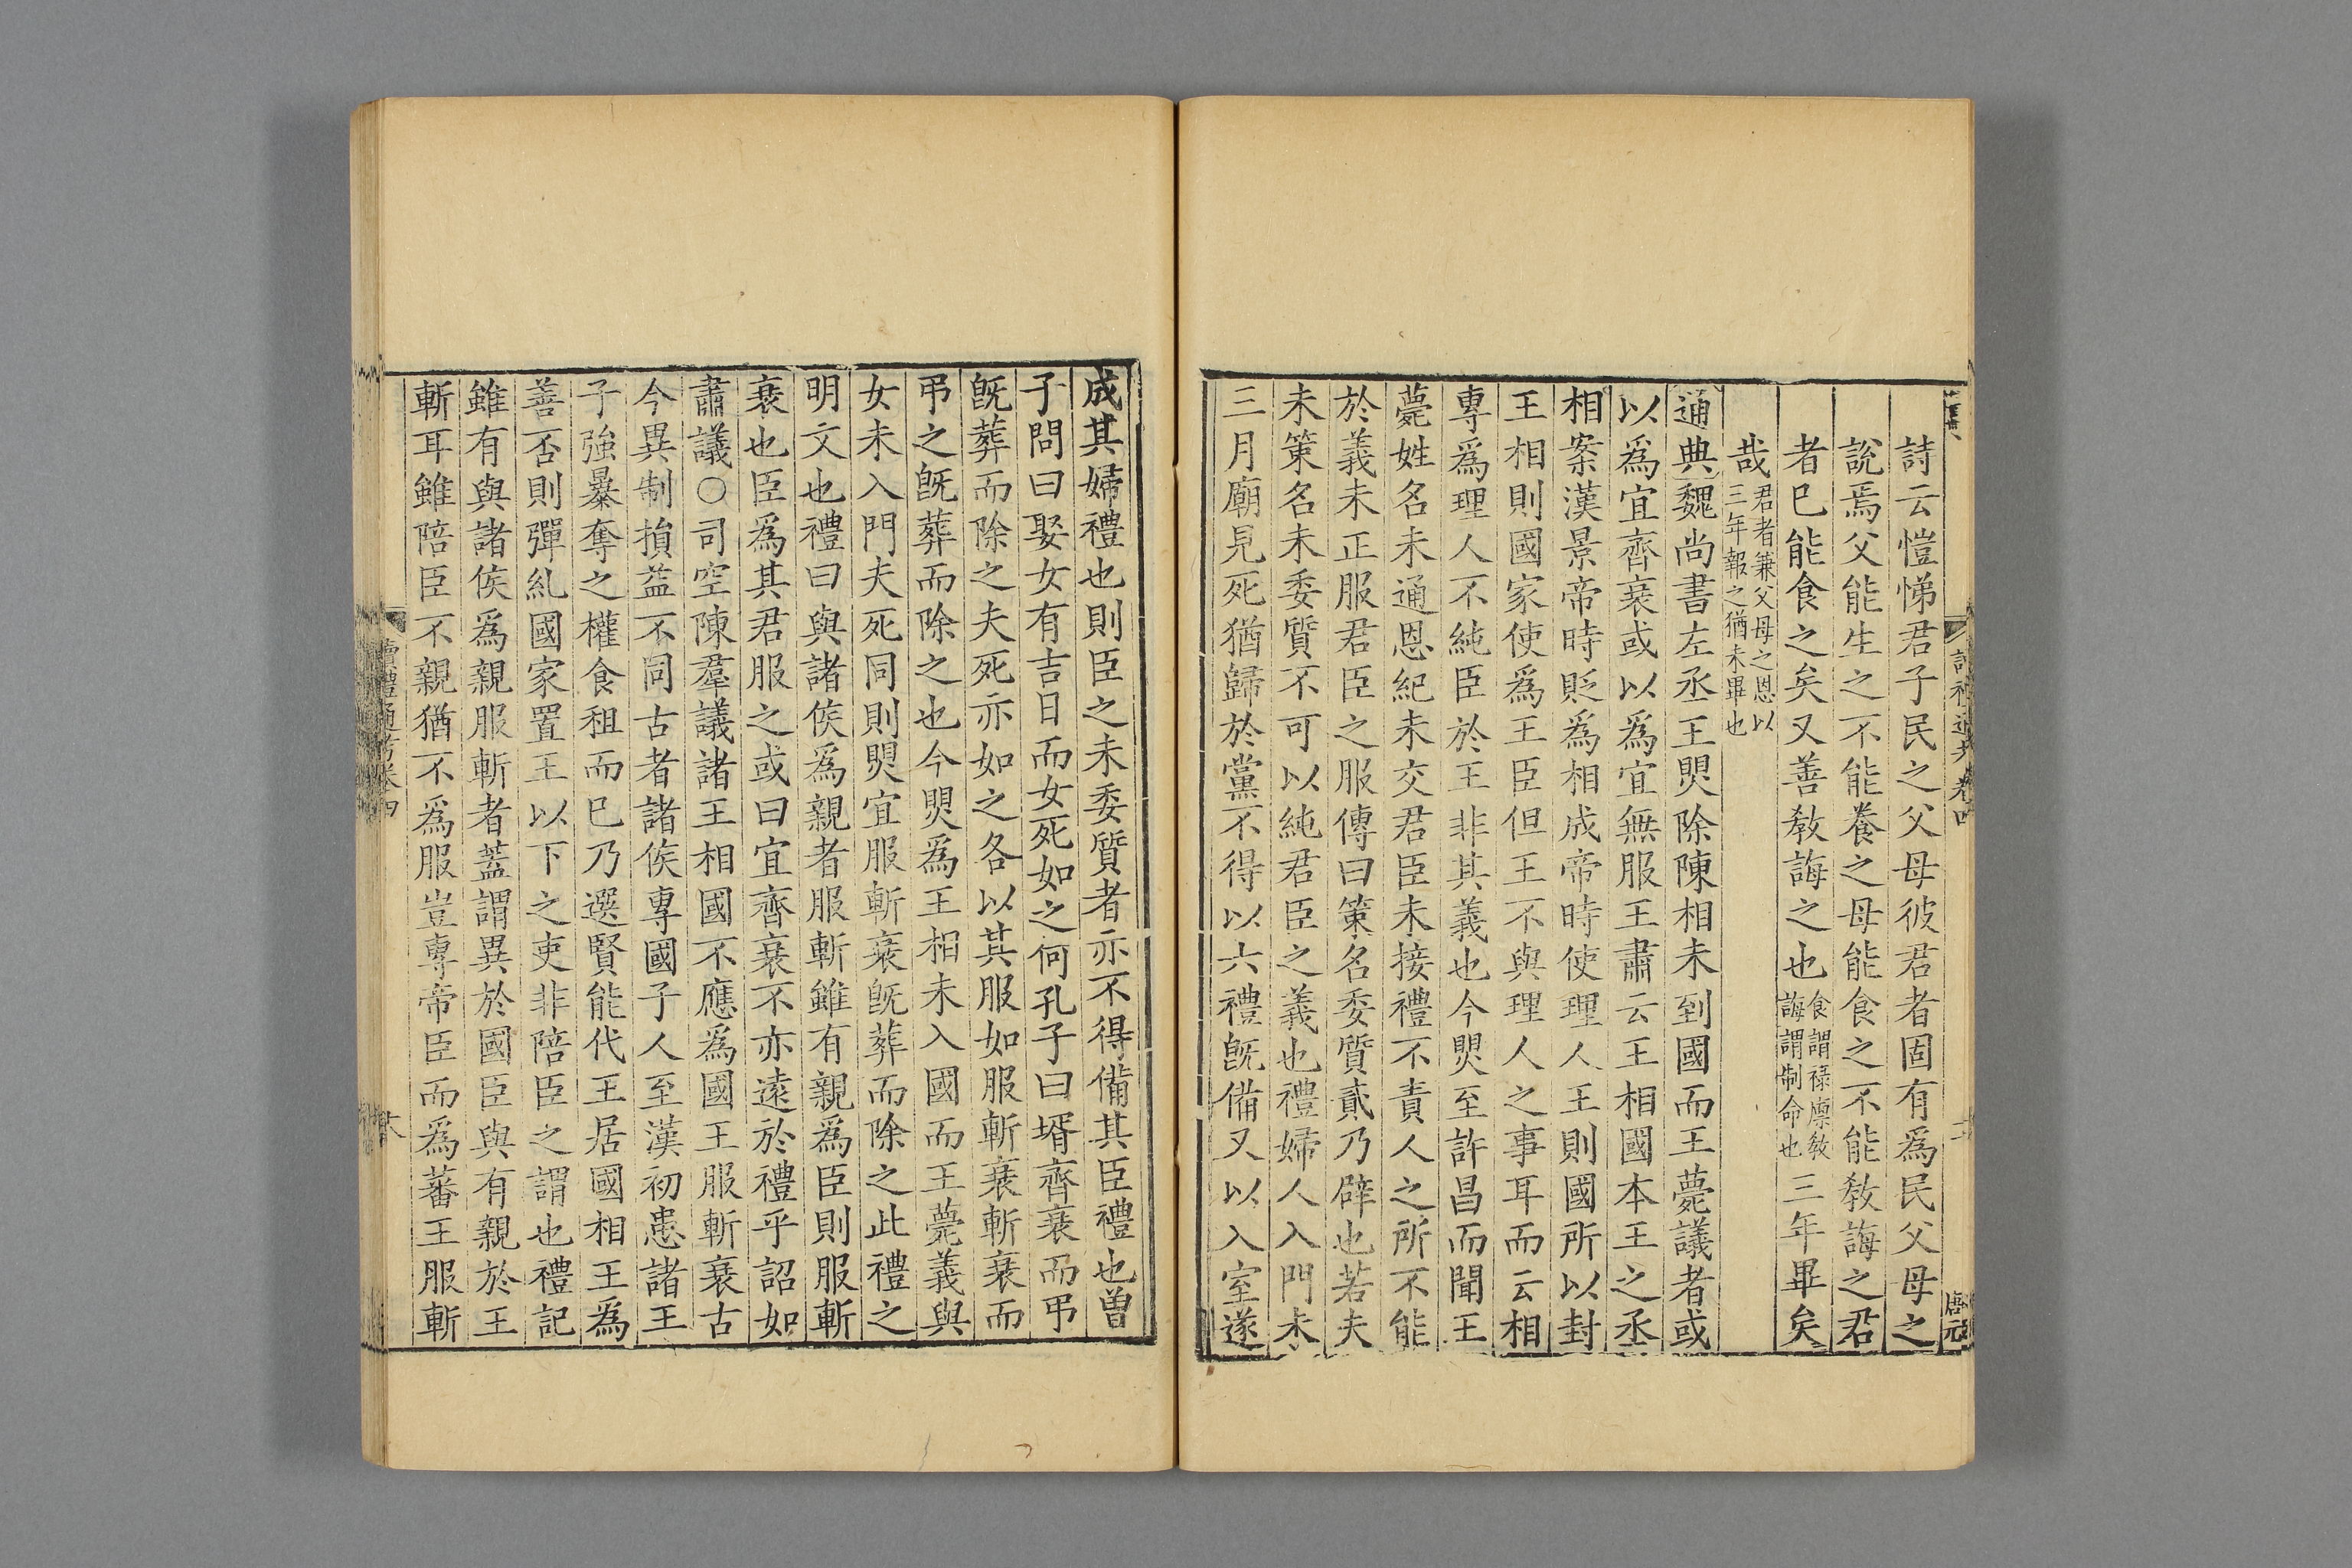 詩云愷悌君子民之父母彼君者固有爲民父母之
說焉父能生之不能養之母能食之不能敎誨之君
者已能食之矣又善敎誨之也食謂祿廪敎誨謂制命也三年畢矣
哉君者兼父母之恩以三年報之猶未畢也
通典魏尚書左丞王煛除陳相未到國而王薨議者或
以爲宜齊衰或以爲宜無服王肅云王相國本王之丞
相案漢景帝時貶爲相成帝時使理人王則國所以封
王相則國家使爲王臣但王不與理人之事耳而云相
專爲理人不純臣於王非其義也今煛至許昌而聞王
薨姓名未通恩紀未交君臣未接禮不責人之所不能
於義未正服君臣之服傳曰策名委質貳乃辟也若夫
未策名未委質不可以純君臣之義也禮婦人入門未
三月廟見死猶歸於黨不得以六禮旣備又以入室遂
成其婦禮也則臣之未委質者亦不得備其臣禮也曽
子問曰娶女有吉日而女死如之何孔子曰壻齊衰而弔
旣葬而除之夫死亦如之各以其服如服斬衰斬衰而
弔之旣葬而除之也今煛爲王相未入國而王薨義與
女未入門夫死同則煛宜服斬衰旣葬而除之此禮之
明文也禮曰與諸侯爲親者服斬雖有親爲臣則服斬
衰也臣爲其君服之或曰宜齊衰不亦遠於禮乎詔如
肅議○司空陳羣議諸王相國不應爲國王服斬衰古
今異制損益不同古者諸侯專國子人至漢初患諸王
子強暴奪之權食租而已乃選賢能代王居國相王爲
善否則彈糺國家置王以下之吏非陪臣之謂也禮記
雖有與諸侯爲親服斬者蓋謂異於國臣與有親於王
斬耳雖陪臣不親猶不爲服豈專帝臣而爲蕃王服斬
讀禮通考卷四